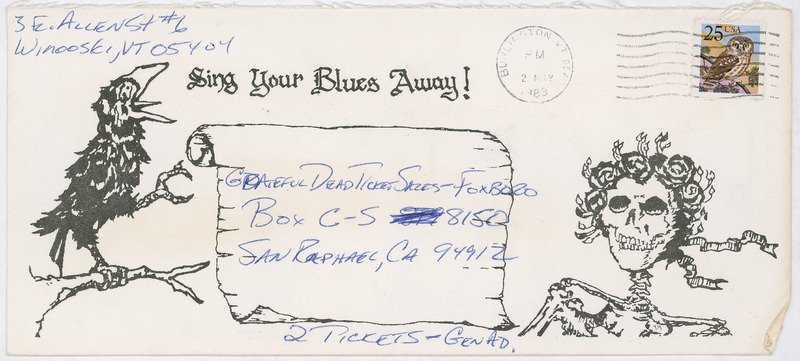 3 E. Allen St #6
Winooski, VT 05404
Sing Your Blues Away!
BURLINGTON VT USA
PM
2 MAY
1989
25 USA
Grateful Dead Ticket Sales - Foxboro
Box C-S 8150
San Raphael, CA 94912
2 Tickets - Gen Ad.